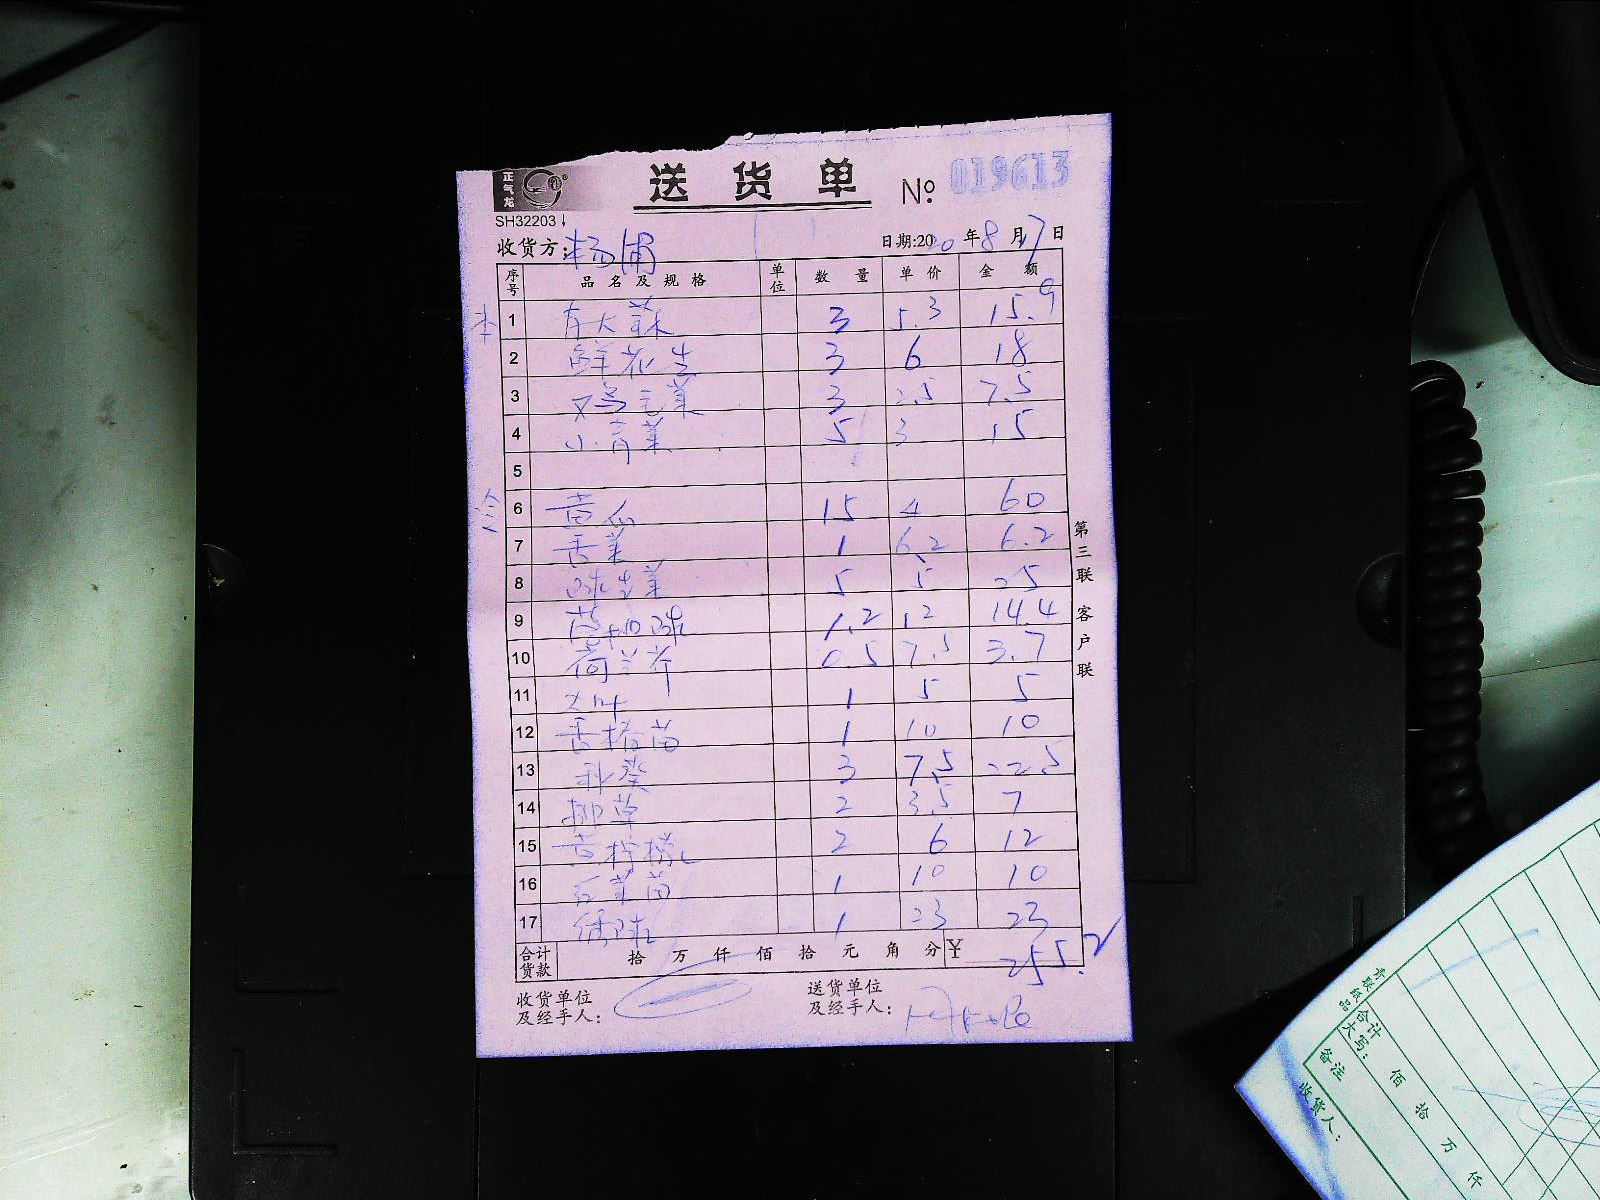 正气龙
送货单 No. 019613
SH32203
收货方: 杨浦 日期:2020年8月17日
序号 品名及规格 单位 数量 单价 金额
1 3 5.3 15.9
2 鲜花生 3 6 18
3 鸡毛菜 3 2.5 7.5
4 小青菜 5 3 15
5
6 黄瓜 15 4 60
7 香菜 1 6.2 6.2
8 球生菜 5 5 25
9 1.2 12 14.4
10 荷兰芹 0.5 7.5 3.7
11 大叶 1 5 5
12 1 10 10
13 秋葵 3 7.5 22.5
14 2 3.5 7
15 黄柠檬 2 6 12
16 红菜苗 1 10 10
17 1 23 23
合计货款 拾 万 仟 佰 拾 元 角 分 ¥ 255.2
收货单位及经手人:
送货单位及经手人:
第三联 客户联
合计大写: 佰 拾 万 仟
备注
收货人: